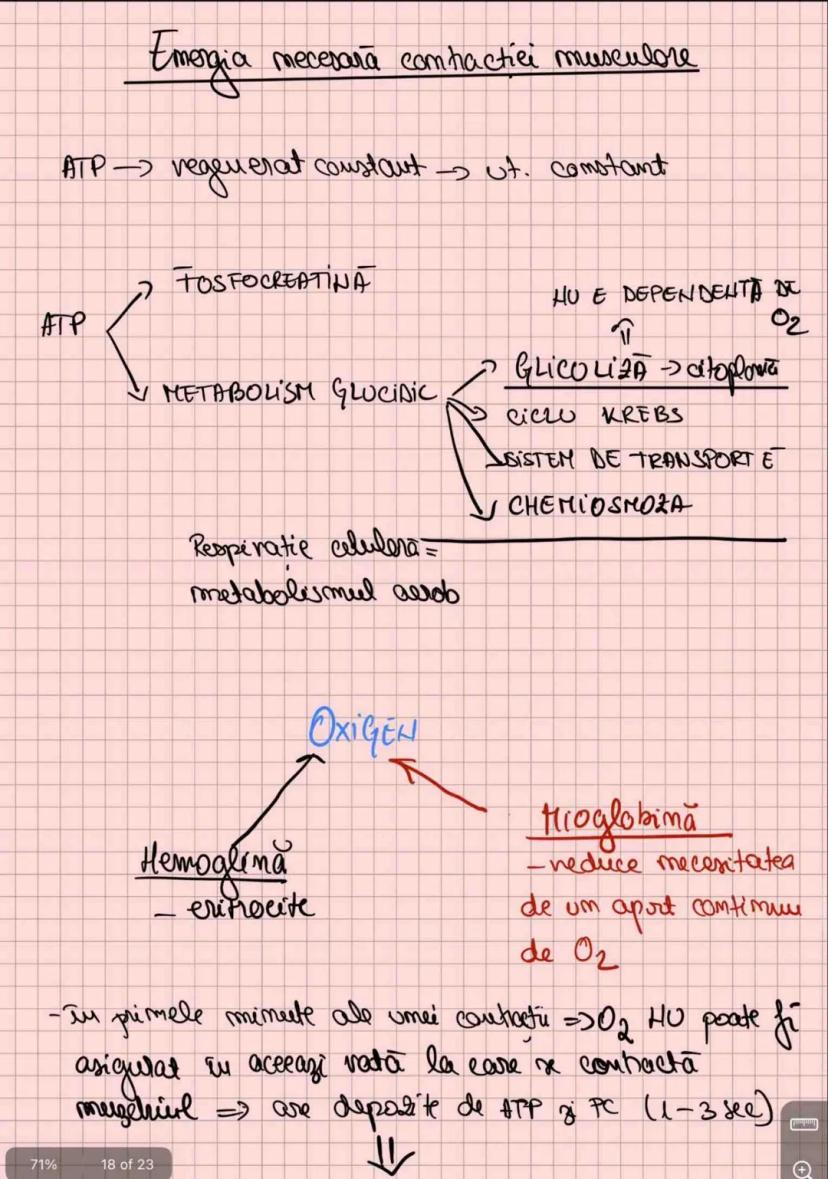 Energia necesară contracției musculare
ATP → regenerat constant → ut. constant
FOSFOCREATINĂ
NU E DEPENDENTĂ DE
O2
ATP
GLICOLIZĂ → citoplasmă
METABOLISM GLUCIDIC
CICLU KREBS
SISTEM DE TRANSPORT E
CHEMIOSMOZA
Respirație celulară =
metabolismul aerob
OXIGEN
Mioglobină
Hemoglină
- reduce necesitatea
- eritrocite
de un aport continuu
de O2
- în primele minute ale unei contracții => O2 NU poate fi
asigurat în aceeași rată la care se contractă
mușchiul => are depozite de ATP și PC (1-3 sec)
71% 18 of 23